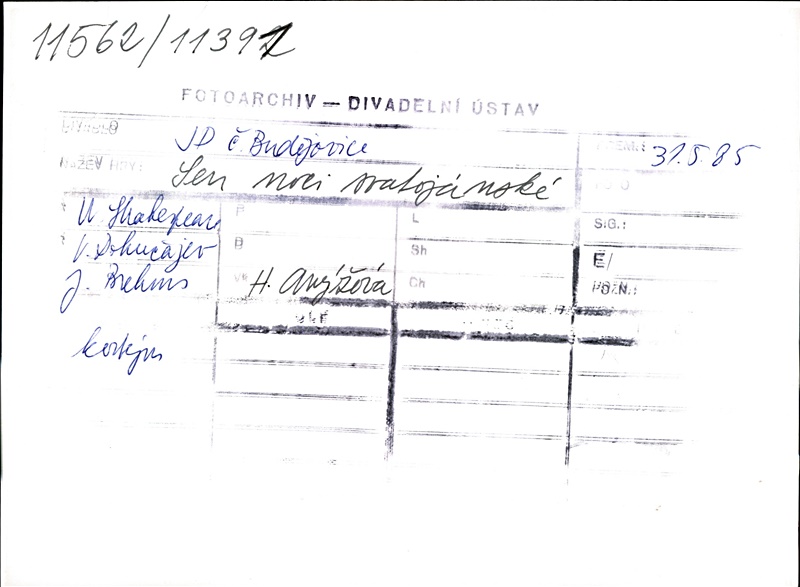 11562/11391
FOTOARCHIV — DIVADELNÍ ÚSTAV
DIVADLO JD č. Budějovice PREM.: 31.5.85
NÁZEV HRY: Sen noci svatojánské
W. Shakespeare P L SIG.:
V. Dokučajev D Sh E/
J. Brehms H. Anýžová Ch POZN.:
kostým